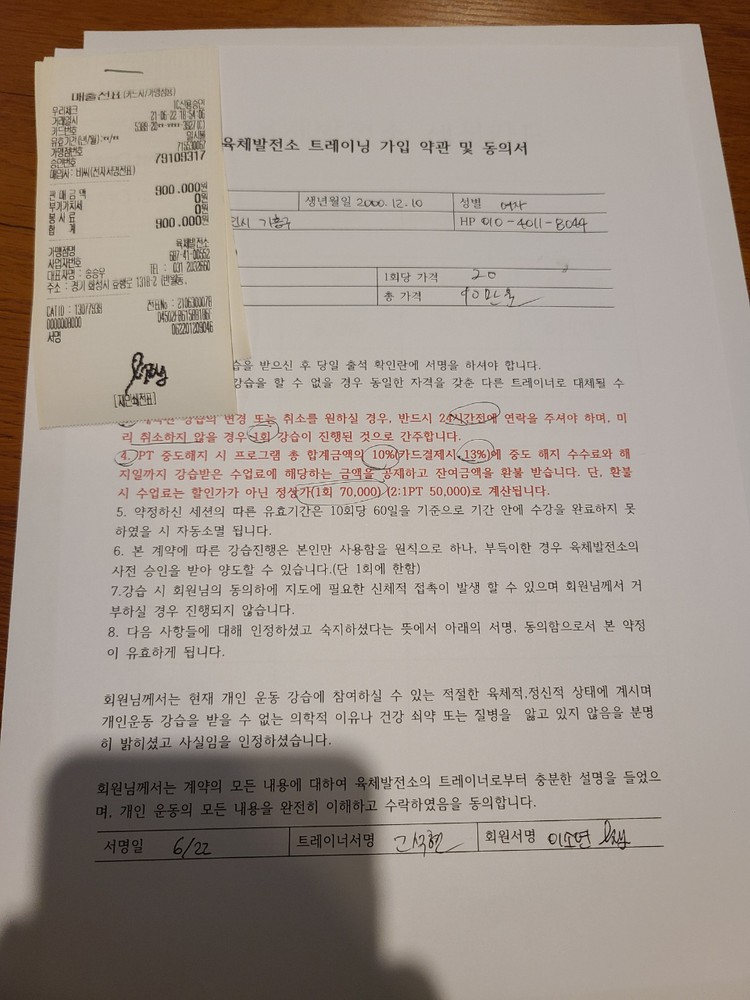 매출전표(카드사/가맹점용)
우리체크 IC신용승인
거래일시 21/06/22 18:54:06
카드번호
유효기간(년/월):**/** 일시불
가맹점번호 715530067
승인번호 79109317
매입사 : 비씨(전자서명전표)
판매금액 900,000원
부가가치세 0원
봉사료 0원
합 계 900,000원
가맹점명 육체발전소
사업자번호 687-41-00552
대표자명 : 송승우 TEL : 031 2032660
주소 : 경기 화성시 효행로 1318-2 (반월동,
CATID : 13077539 전표No : 210630007B
0000009000
서명 062201209046
[재인쇄전표]
육체발전소 트레이닝 가입 약관 및 동의서
생년월일 2000.12.10 성별 여자
인시 기흥구 HP 010-4011-8044
1회당 가격 20
총 가격 90만원
습을 받으신 후 당일 출석 확인란에 서명을 하셔야 합니다.
강습을 할 수 없을 경우 동일한 자격을 갖춘 다른 트레이너로 대체될 수
강습의 변경 또는 취소를 원하실 경우, 반드시 24시간전에 연락을 주셔야 하며, 미
리 취소하지 않을 경우 1회 강습이 진행된 것으로 간주합니다.
4. PT 중도해지 시 프로그램 총 합계금액의 10%(카드결제시.13%)에 중도 해지 수수료와 해
지일까지 강습받은 수업료에 해당하는 금액을 공제하고 잔여금액을 환불 받습니다. 단, 환불
시 수업료는 할인가가 아닌 정상가(1회 70,000) (2:1PT 50,000)로 계산됩니다.
5. 약정하신 세션의 따른 유효기간은 10회당 60일을 기준으로 기간 안에 수강을 완료하지 못
하였을 시 자동소멸 됩니다.
6. 본 계약에 따른 강습진행은 본인만 사용함을 원칙으로 하나, 부득이한 경우 육체발전소의
사전 승인을 받아 양도할 수 있습니다.(단 1회에 한함)
7.강습 시 회원님의 동의하에 지도에 필요한 신체적 접촉이 발생 할 수 있으며 회원님께서 거
부하실 경우 진행되지 않습니다.
8. 다음 사항들에 대해 인정하셨고 숙지하셨다는 뜻에서 아래의 서명, 동의함으로서 본 약정
이 유효하게 됩니다.
회원님께서는 현재 개인 운동 강습에 참여하실 수 있는 적절한 육체적,정신적 상태에 계시며
개인운동 강습을 받을 수 없는 의학적 이유나 건강 쇠약 또는 질병을 앓고 있지 않음을 분명
히 밝히셨고 사실임을 인정하셨습니다.
회원님께서는 계약의 모든 내용에 대하여 육체발전소의 트레이너로부터 충분한 설명을 들었으
며, 개인 운동의 모든 내용을 완전히 이해하고 수락하였음을 동의합니다.
서명일 6/22 트레이너서명 회원서명 이소연